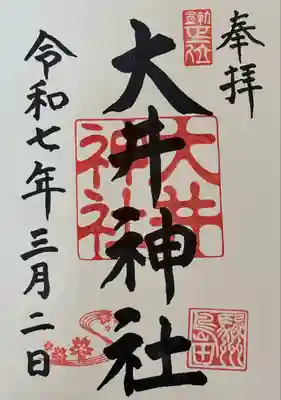 奉拝
大井神社
大井
神社
令和七年三月二日